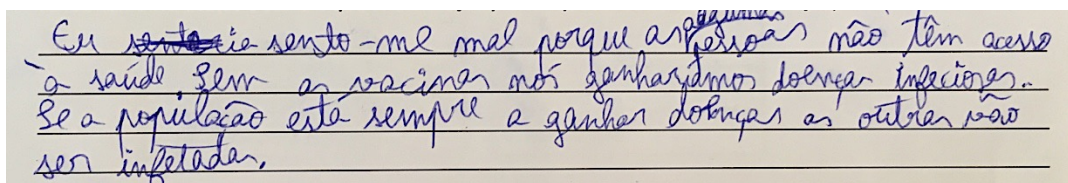 Eu sinto-me mal porque as algumas pessoas não têm acesso
à saúde. Sem as vacinas nós ganharíamos doenças infeciosas.
Se a população está sempre a ganhar doenças as outras vão
ser infetadas.